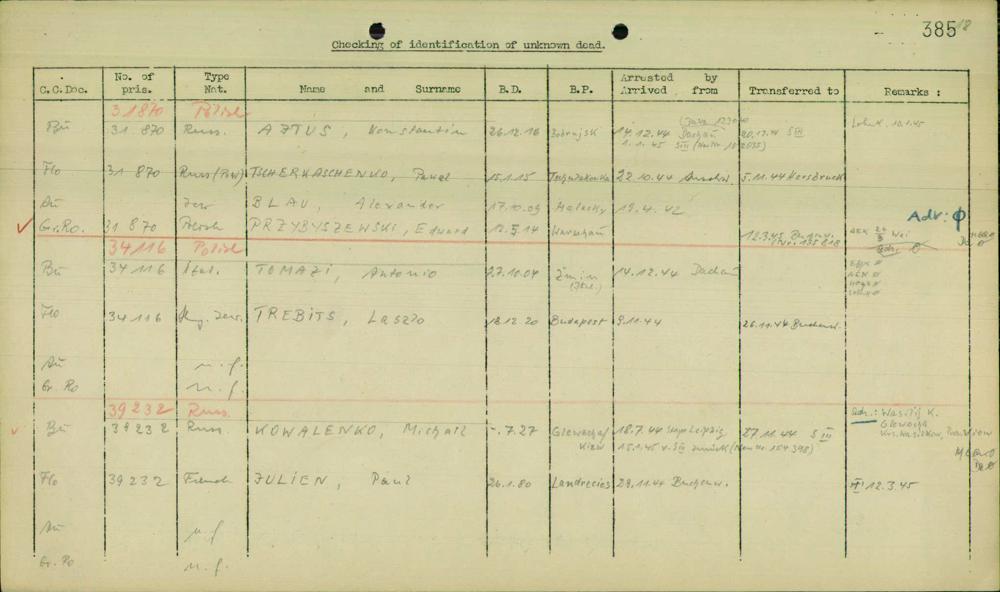 385 18
Checking of identification of unknown dead.
C.C.Doc. No. of pris. Type Nat. Name and Surname B.D. B.P. Arrested by Arrived from Transferred to Remarks :
31870 Polish
Bu 31 870 Russ. AJTUS, Konstantin 26.12.16 Bobrujsk 14.12.44 Dachau 20.12.44 S III
1.1.45 S III
Flo 31 870 Russ (PoW) TSCHERKASCHENKO, Pawel 15.1.15 22.10.44 Auschw. 5.11.44 Hersbruck
Au Jew BLAU, Alexander 17.10.09 Malacky 19.4.42
Adr: ϕ
Gr.Ro. 31 870 Polish PRZYBYSZEWSKI, Eduard 12.5.14 Warschau 12.3.45
34116 Polish
Bu 34116 Ital. TOMAZI, Antonio 27.10.04 14.12.44 Dachau
(Ital.)
Flo 34116 Ung. Jew. TREBITS, Laszlo 18.12.20 Budapest 9.11.44 26.11.44 Buchenw.
Au n.f.
Gr. Ro n.f.
39232 Russ.
Adr.: Wasilij K.
Bu 39232 Russ. KOWALENKO, Michail -.7.27 Glewachaj 18.7.44 Leipzig 27.11.44 S III
Glewacha
Kiew 15.1.45 v. S III zurück (neue Nr. 134398)
Flo 39232 French JULIEN, Paul 26.1.80 Landrecies 29.11.44 Buchenw. 12.3.45
Au n.f.
Gr. Ro n.f.